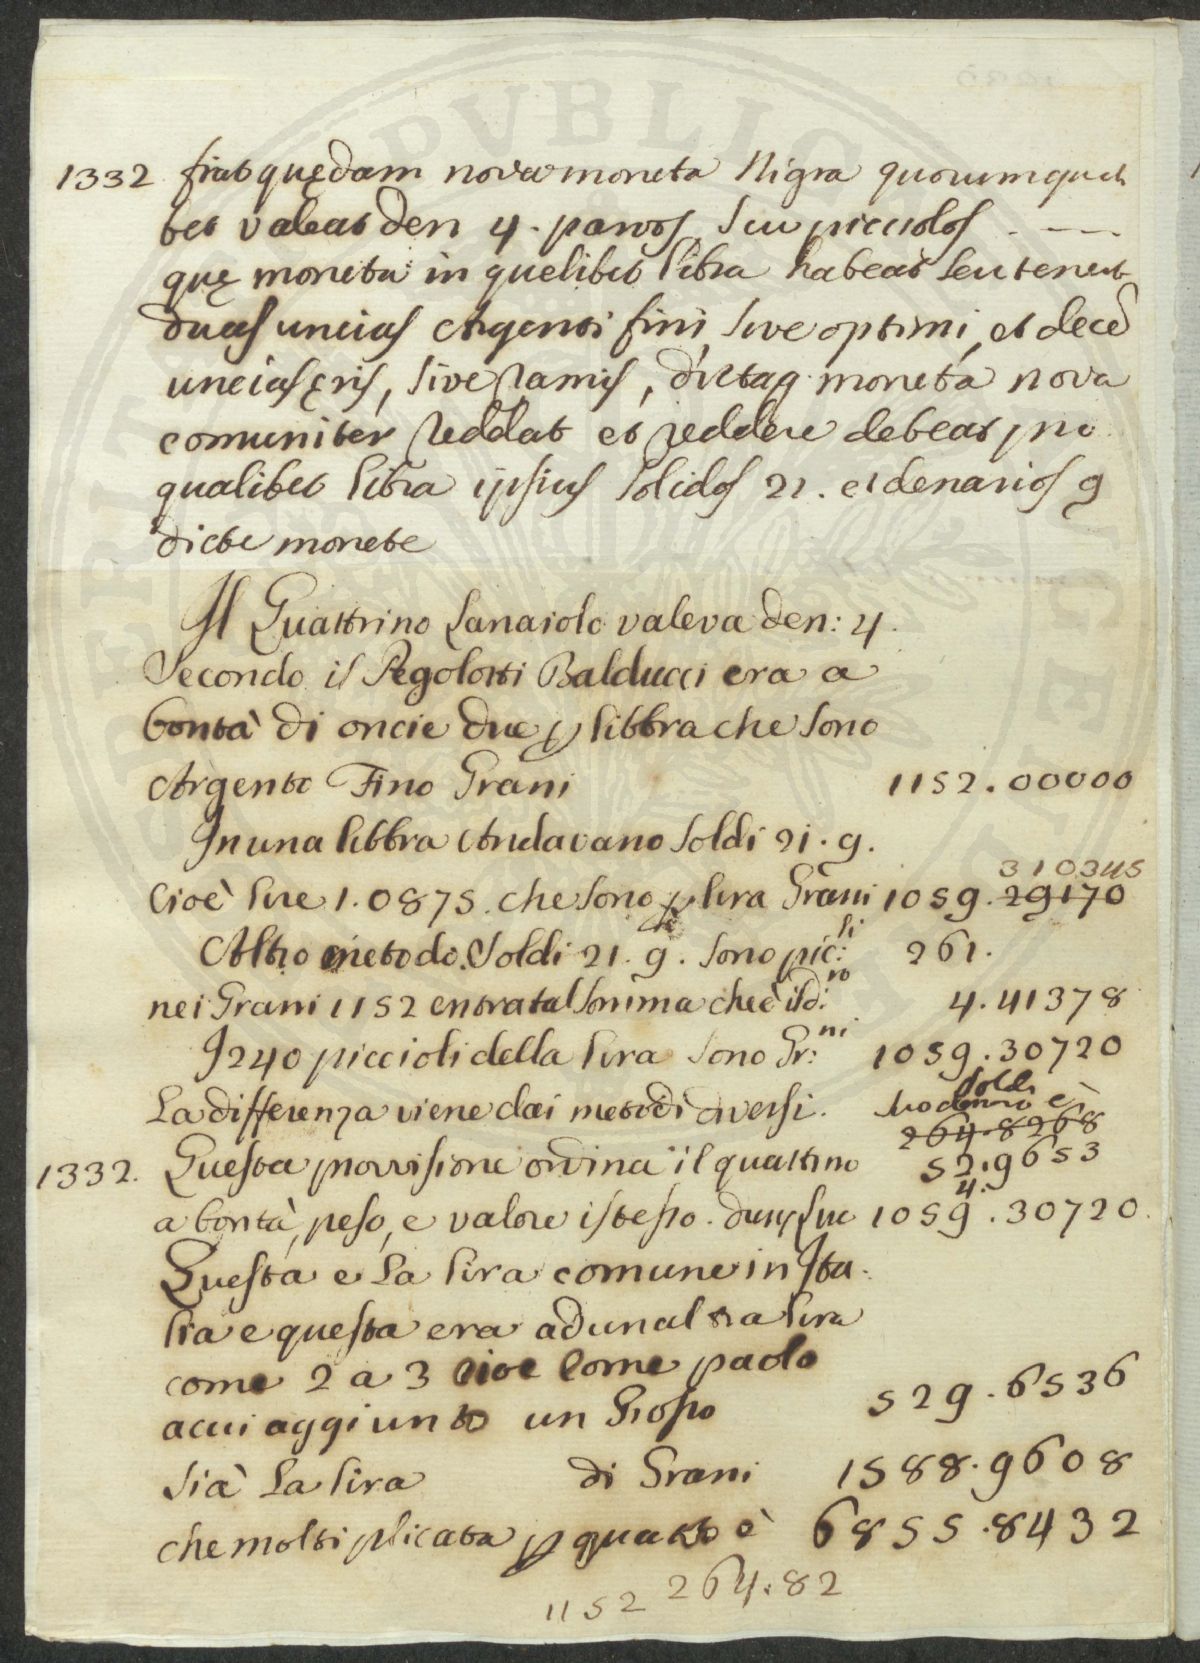 1332 fiat quędam nova moneta Nigra quorum quali
bet valeat den 4. parvos seu picciolos . ---
quę moneta in quelibet libra habeat seu teneat
duas uncias Argenti fini, sive optimi, et decē
uncias ęris, sive ramis, dictaq. moneta nova
comuniter reddat et reddere debeat pro
qualibet libra ipsius solidos 21. et denarios 9
dicte monete
Il Quattrino Lanaiolo valeva den: 4.
Secondo il Pegolotti Balducci era a
bontà di oncie due p libbra che sono
Argento Fino Grani 1152.00000
In una libbra Andavano soldi 21.9.
310345
Cioè lire 1.0875. che sono p lira Grani 1059.29170
Altro metodo. Soldi 21.9. sono pic:li 261.
nei Grani 1152 entra tal somma che è il d:ro 4.41378
I 240 piccioli della lira sono Gr:ni 1059.30720
La differenza viene dai metodi diversi. soldi
è
264.8268
1332. Questa provvisione ordina il quattrino 52.9653
4.
a bontà, peso, e valore istesso. dunq Lire 1059.30720.
Questa e La lira comune in Ita-
lia e questa era ad un altra lira
come 2 a 3 cioe come paolo
a cui aggiunto un Grosso 529.6536
sia La lira di Grani 1588.9608
che moltiplicata p quatto è 6855.8432
1152 264.82